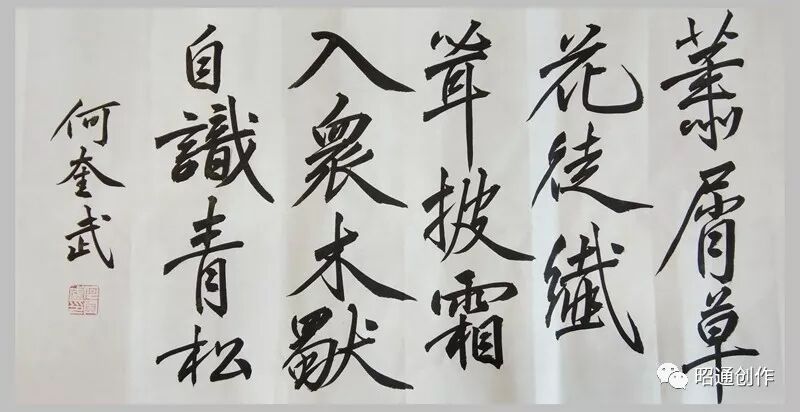 蕭屑草
花徒纖
茸披霜
入眾木獨
自識青松
何奎武
昭通创作